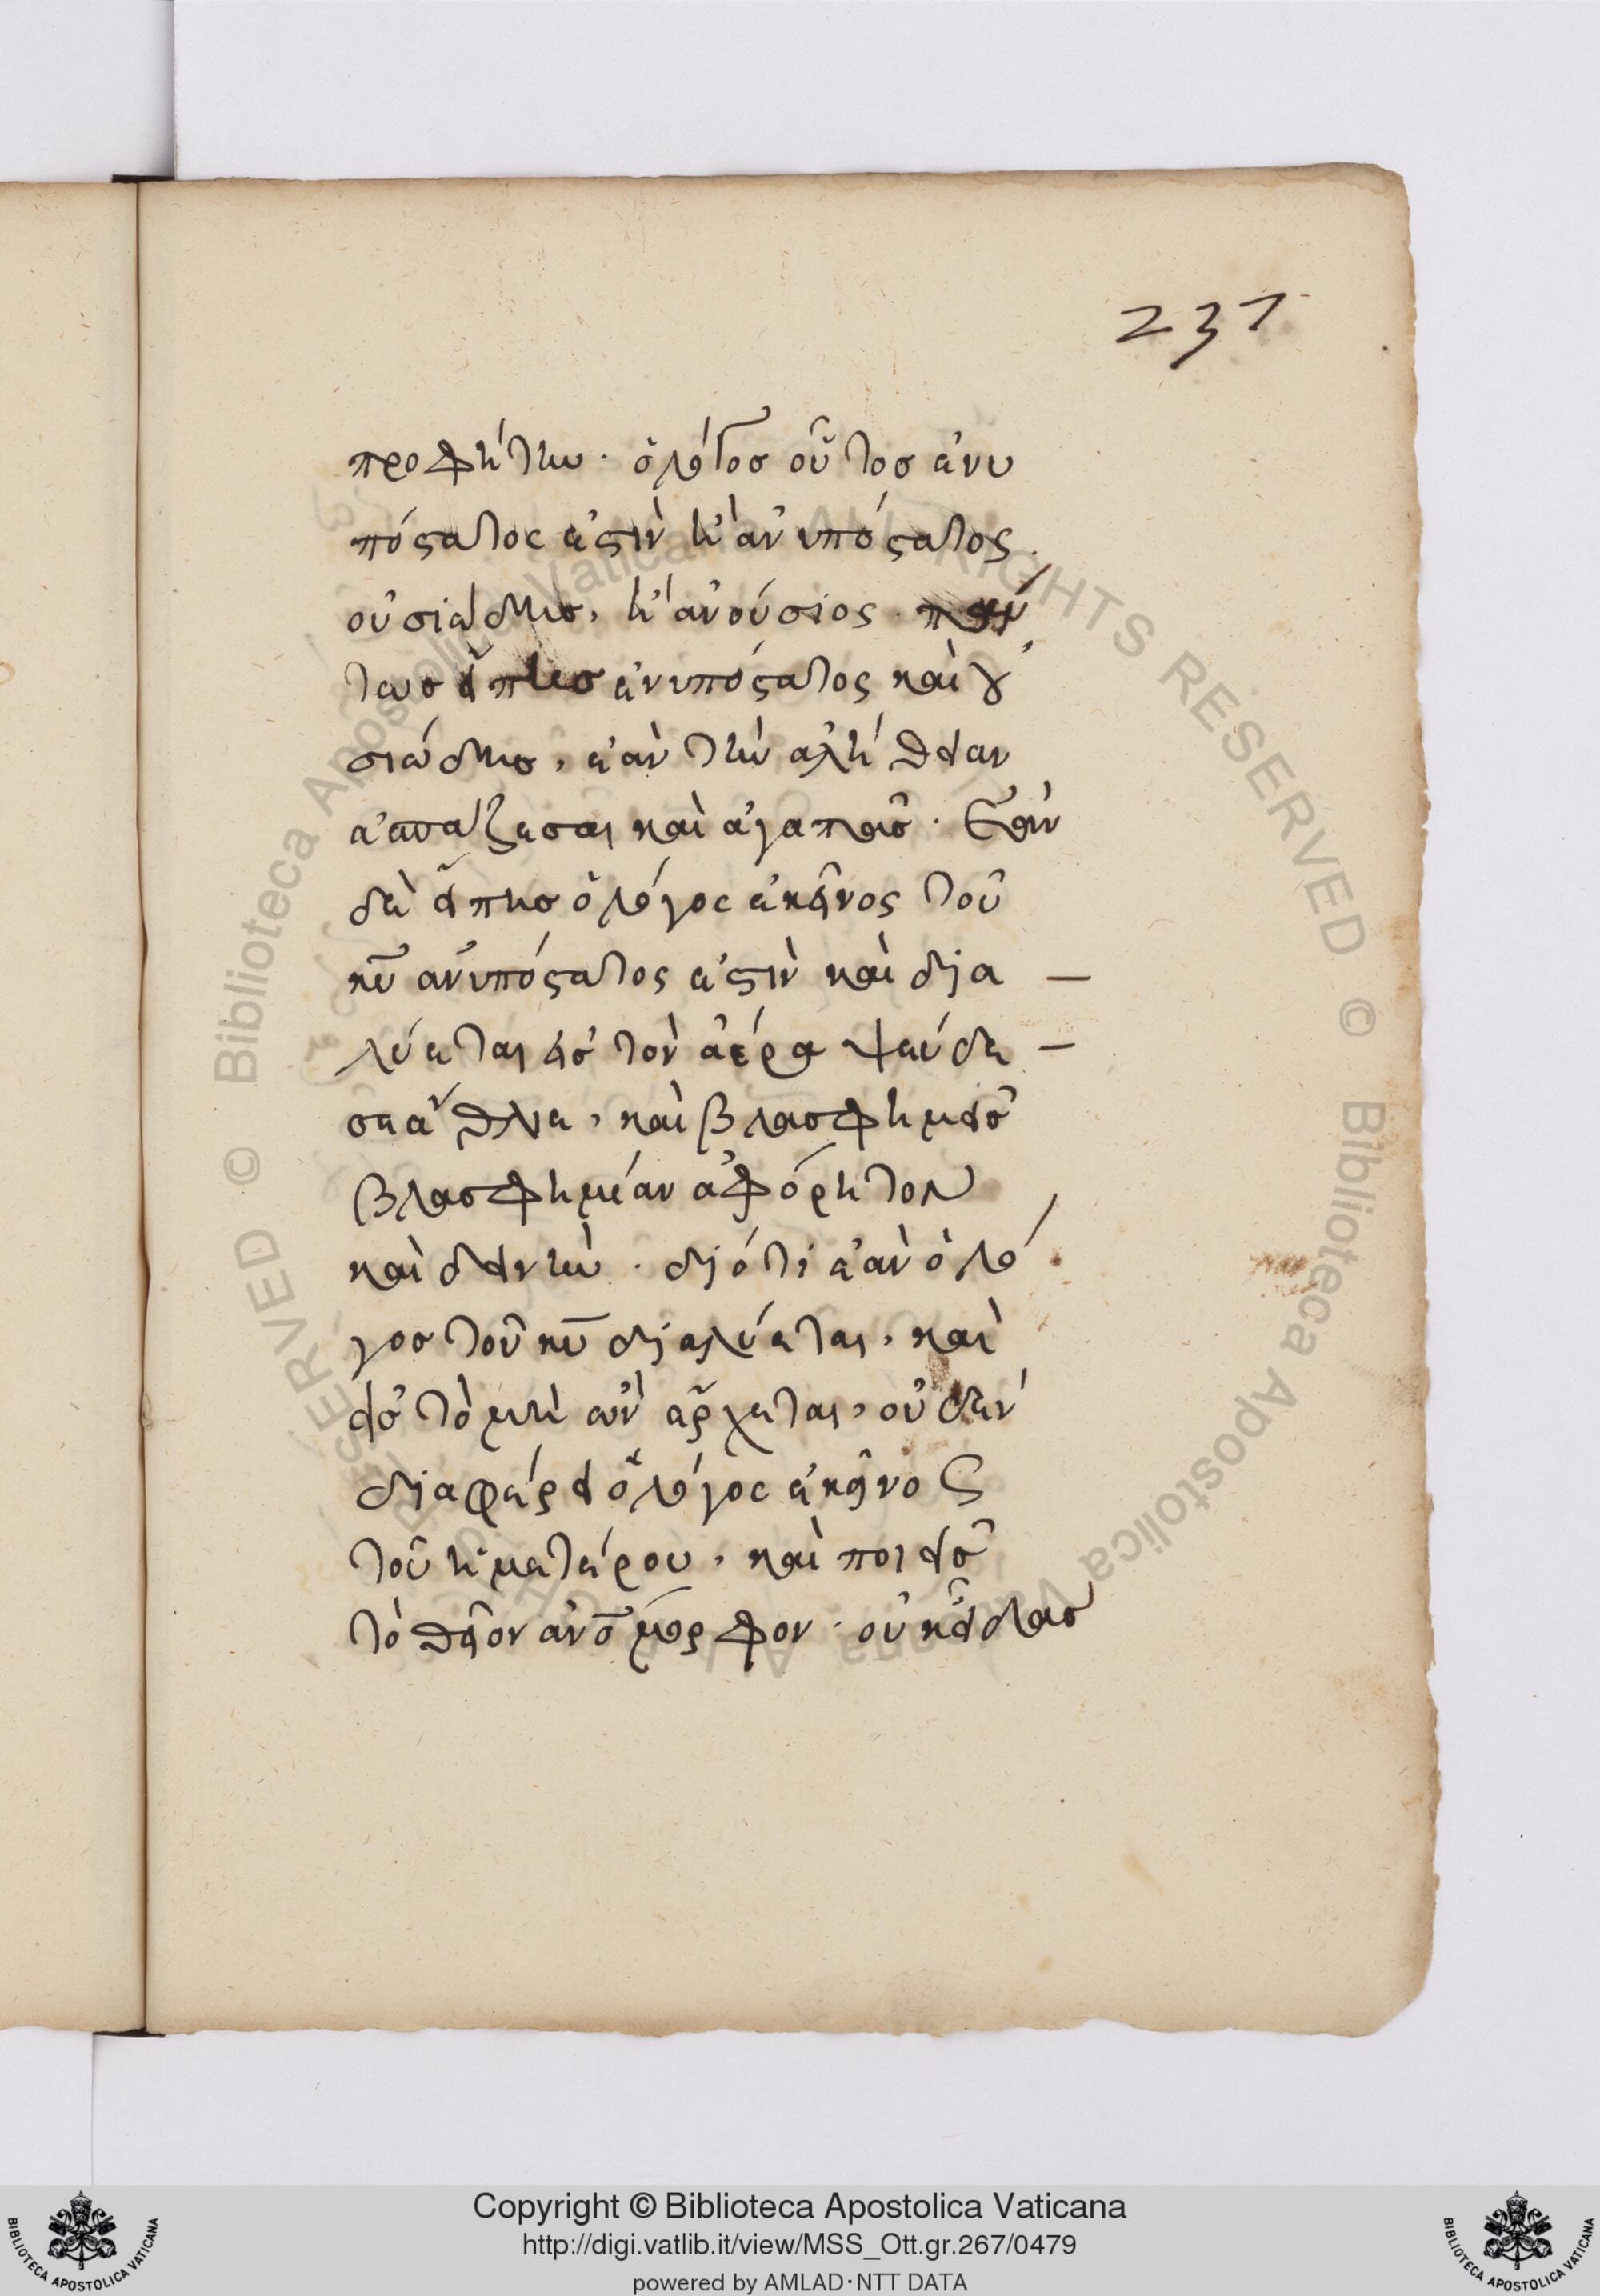 237
προφήτην · ὁ λόγος οὗτος ἐνυ
πόστατος ἐστὶν ἢ ἀνυπόστατος ·
οὐσιώδης, ἢ ἀνούσιος · πάν
τως εἴπης ἐνυπόστατος καὶ οὐ
σιώδης, ἐὰν τὴν ἀλήθειαν
ἀσπάζεσαι καὶ ἀγαπᾶς · Ἐὰν
δὲ εἴπης ὁ λόγος ἐκεῖνος τοῦ
κυ ἀνυπόστατος ἐστὶν καὶ δια —
λύεται εἰς τὸν ἀέρα ψεύδε —
σε ἄθλιε, καὶ βλασφημεῖς
βλασφημίαν ἀφόρητον
καὶ δεινὴν · διότι ἐὰν ὁ λό
γος τοῦ κυ διαλύεται, καὶ
εἰς τὸ μὴ ὂν ἔρχεται, οὐδὲν
διαφέρει ὁ λόγος ἐκεῖνος
τοῦ ἡμετέρου, καὶ ποιεῖς
τὸ θεῖον ἀνομόρφον · οὐκ εἶδας
Copyright © Biblioteca Apostolica Vaticana
http://digi.vatlib.it/view/MSS_Ott.gr.267/0479
powered by AMLAD·NTT DATA
BIBLIOTECA APOSTOLICA VATICANA
BIBLIOTECA APOSTOLICA VATICANA